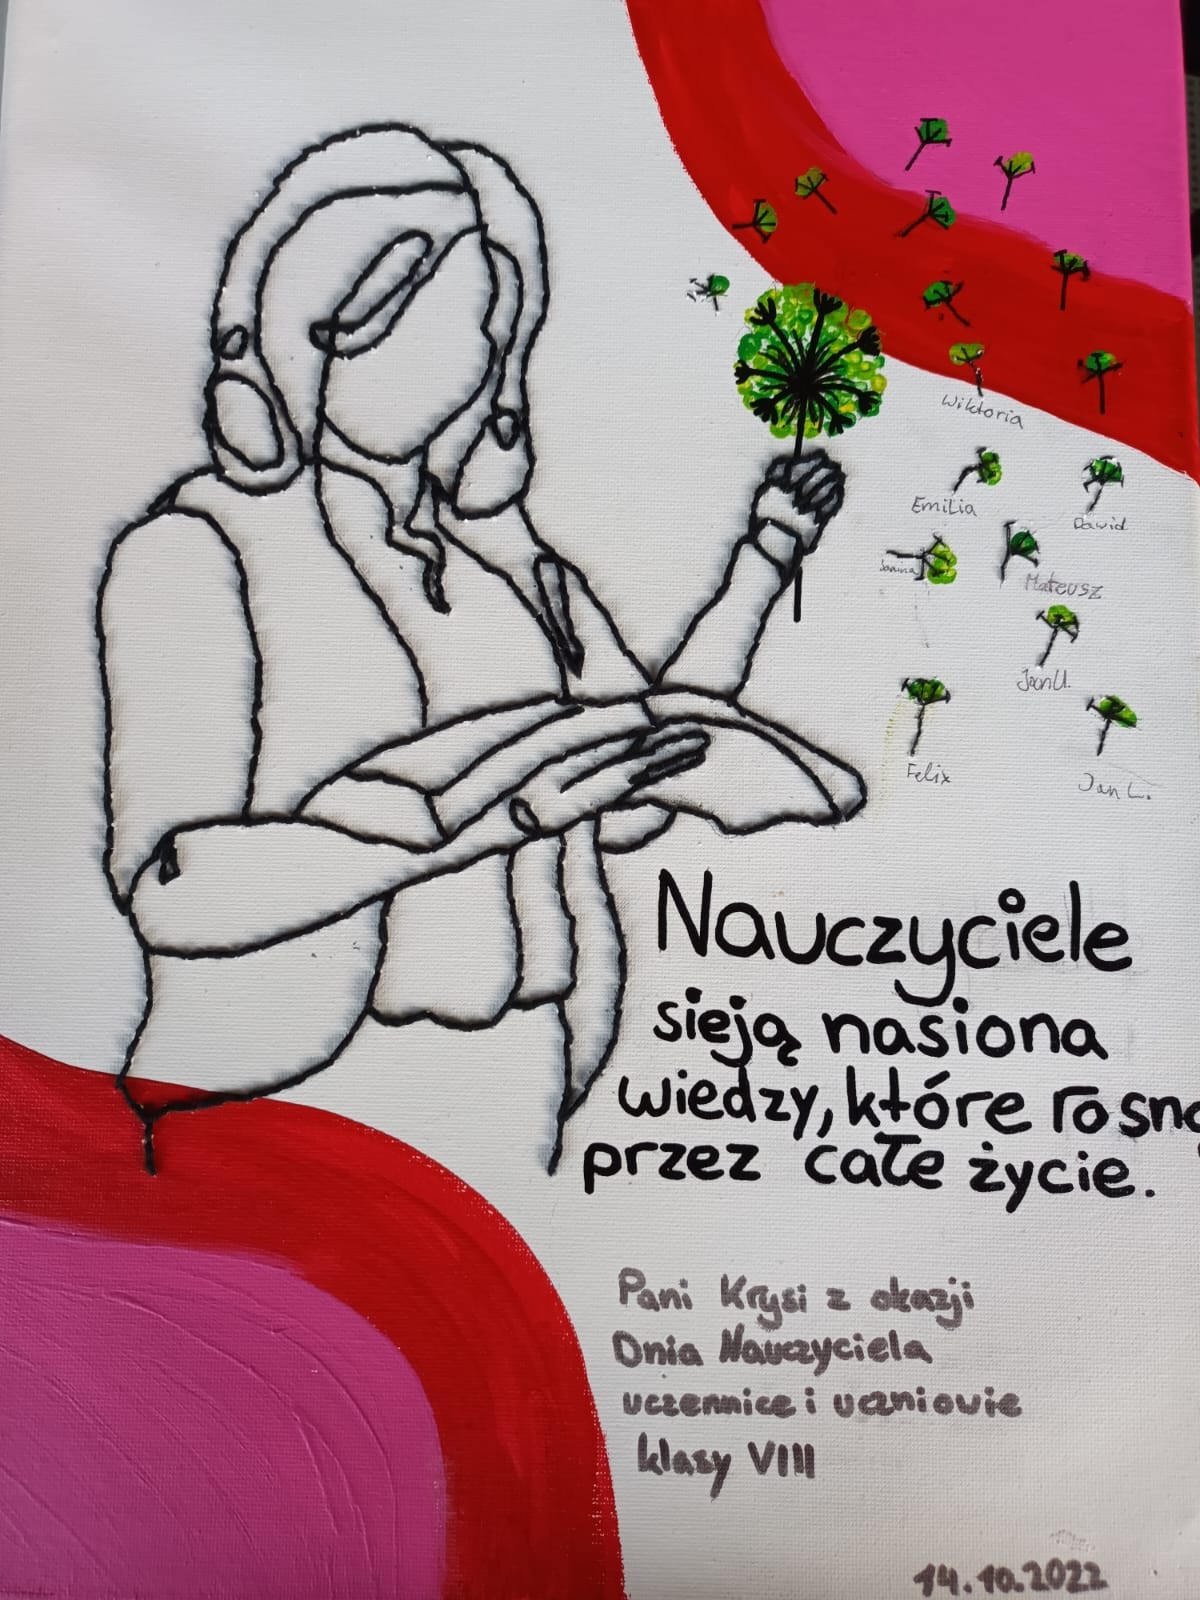 Wiktoria
Emilia
Dawid
Janina
Mateusz
Jan U.
Felix
Jan L.
Nauczyciele
sieją nasiona
wiedzy, które rosną
przez całe życie.
Pani Krysi z okazji
Dnia Nauczyciela
uczennice i uczniowie
klasy VIII
14.10.2022